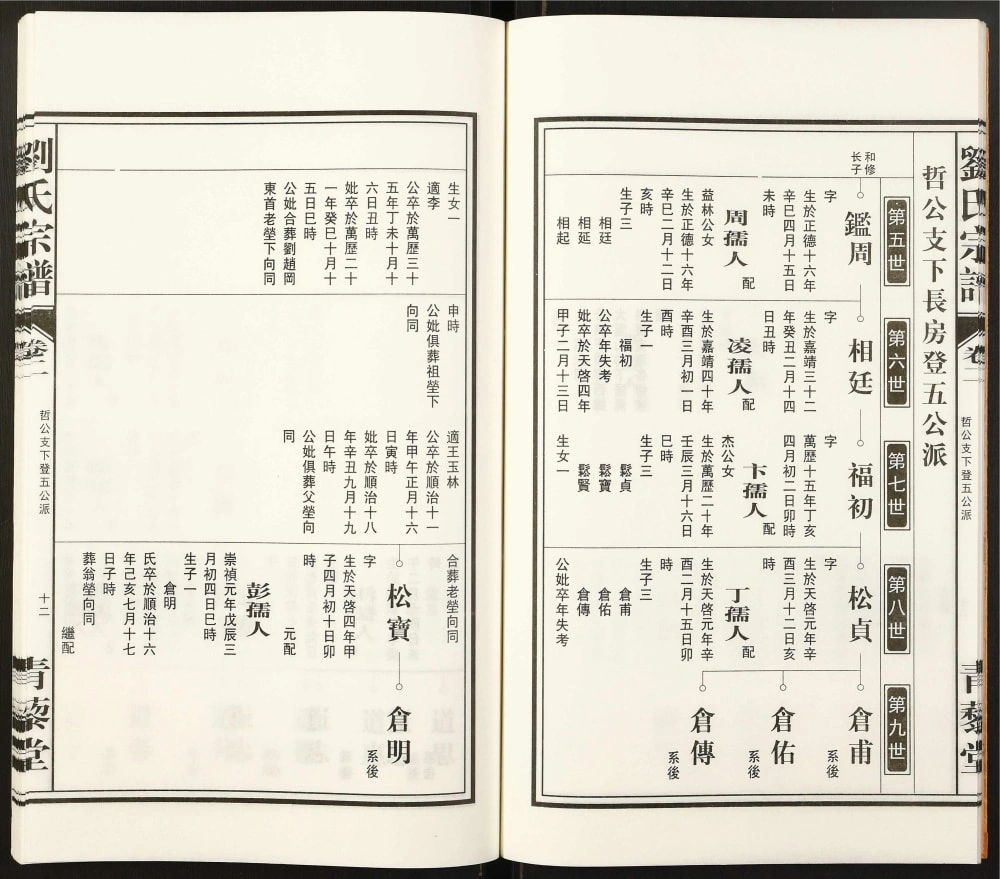 劉氏宗譜
卷二
哲公支下登五公派
青藜堂
哲公支下長房登五公派
第五世
第六世
第七世
第八世
第九世
和修
长子
鑑周
字
生於正德十六年
辛巳四月十五日
未時
周孺人
配
益林公女
生於正德十六年
辛巳二月十二日
亥時
生子三
相廷
相延
相起
相廷
字
生於嘉靖三十二
年癸丑二月十四
日丑時
凌孺人
配
生於嘉靖四十年
辛酉三月初一日
酉時
生子一
福初
公卒年失考
妣卒於天啓四年
甲子二月十三日
福初
字
萬歷十五年丁亥
四月初二日卯時
卞孺人
配
杰公女
生於萬歷二十年
壬辰三月十六日
巳時
生子三
鬆貞
鬆寶
鬆賢
生女一
松貞
字
生於天啓元年辛
酉三月十二日亥
時
丁孺人
配
生於天啓元年辛
酉二月十五日卯
時
生子三
倉甫
倉佑
倉傳
公妣卒年失考
倉甫
系後
倉佑
系後
倉傳
系後
生女一
適李
公卒於萬歷三十
五年丁未十月十
六日丑時
妣卒於萬歷二十
一年癸巳十月十
五日巳時
公妣合葬劉趙岡
東首老塋下向同
申時
公妣俱葬祖塋下
向同
適王玉林
公卒於順治十一
年甲午正月十六
日寅時
妣卒於順治十八
年辛丑九月十九
日午時
公妣俱葬父塋向
同
合葬老塋向同
松寶
字
生於天啓四年甲
子四月初十日卯
時
元配
彭孺人
崇禎元年戊辰三
月初四日巳時
生子一
倉明
氏卒於順治十六
年己亥七月十七
日子時
葬翁塋向同
繼配
倉明
系後
劉氏宗譜
卷二
哲公支下登五公派
十二
青藜堂